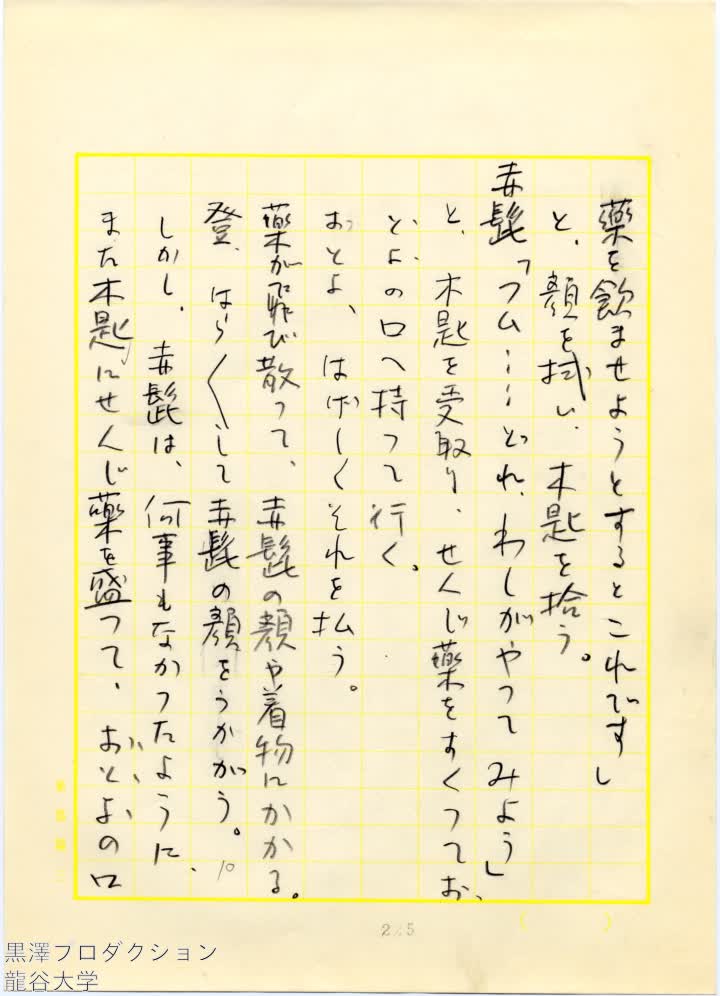 薬を飲ませようとするとこれです」
と、顔を拭い、木匙を拾う。
赤髭「フム……どれ、わしがやってみよう」
と、木匙を受取り、せんじ薬をすくってお
とよの口へ持って行く。
おとよ、はげしくそれを払う。
薬が飛び散って、赤髭の顔や着物にかかる。
登、はら〱して赤髭の顔をうかがう。
しかし、赤髭は、何事もなかったように、
また木匙にせんじ薬を盛って、おとよの口
10
黒澤プロダクション
龍谷大学